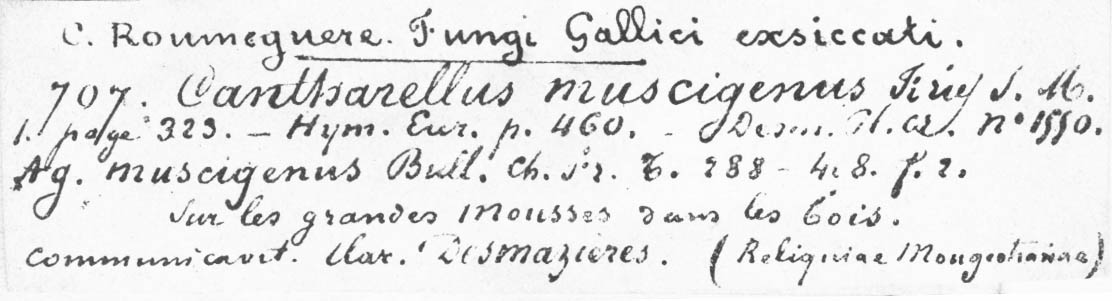 C. Roumeguere. Fungi Gallici exsiccati.
707. Cantharellus muscigenus Fries S. M.
1. page 323. — Hym. Eur. p. 460. - Desm. Pl. Cr. n° 1550.
Ag. muscigenus Bull. Ch. Fr. T. 288 - 498. f. 2.
Sur les grandes Mousses dans les bois.
communicavit. Clar. Desmazieres. (Reliquiae Mougeotianae)